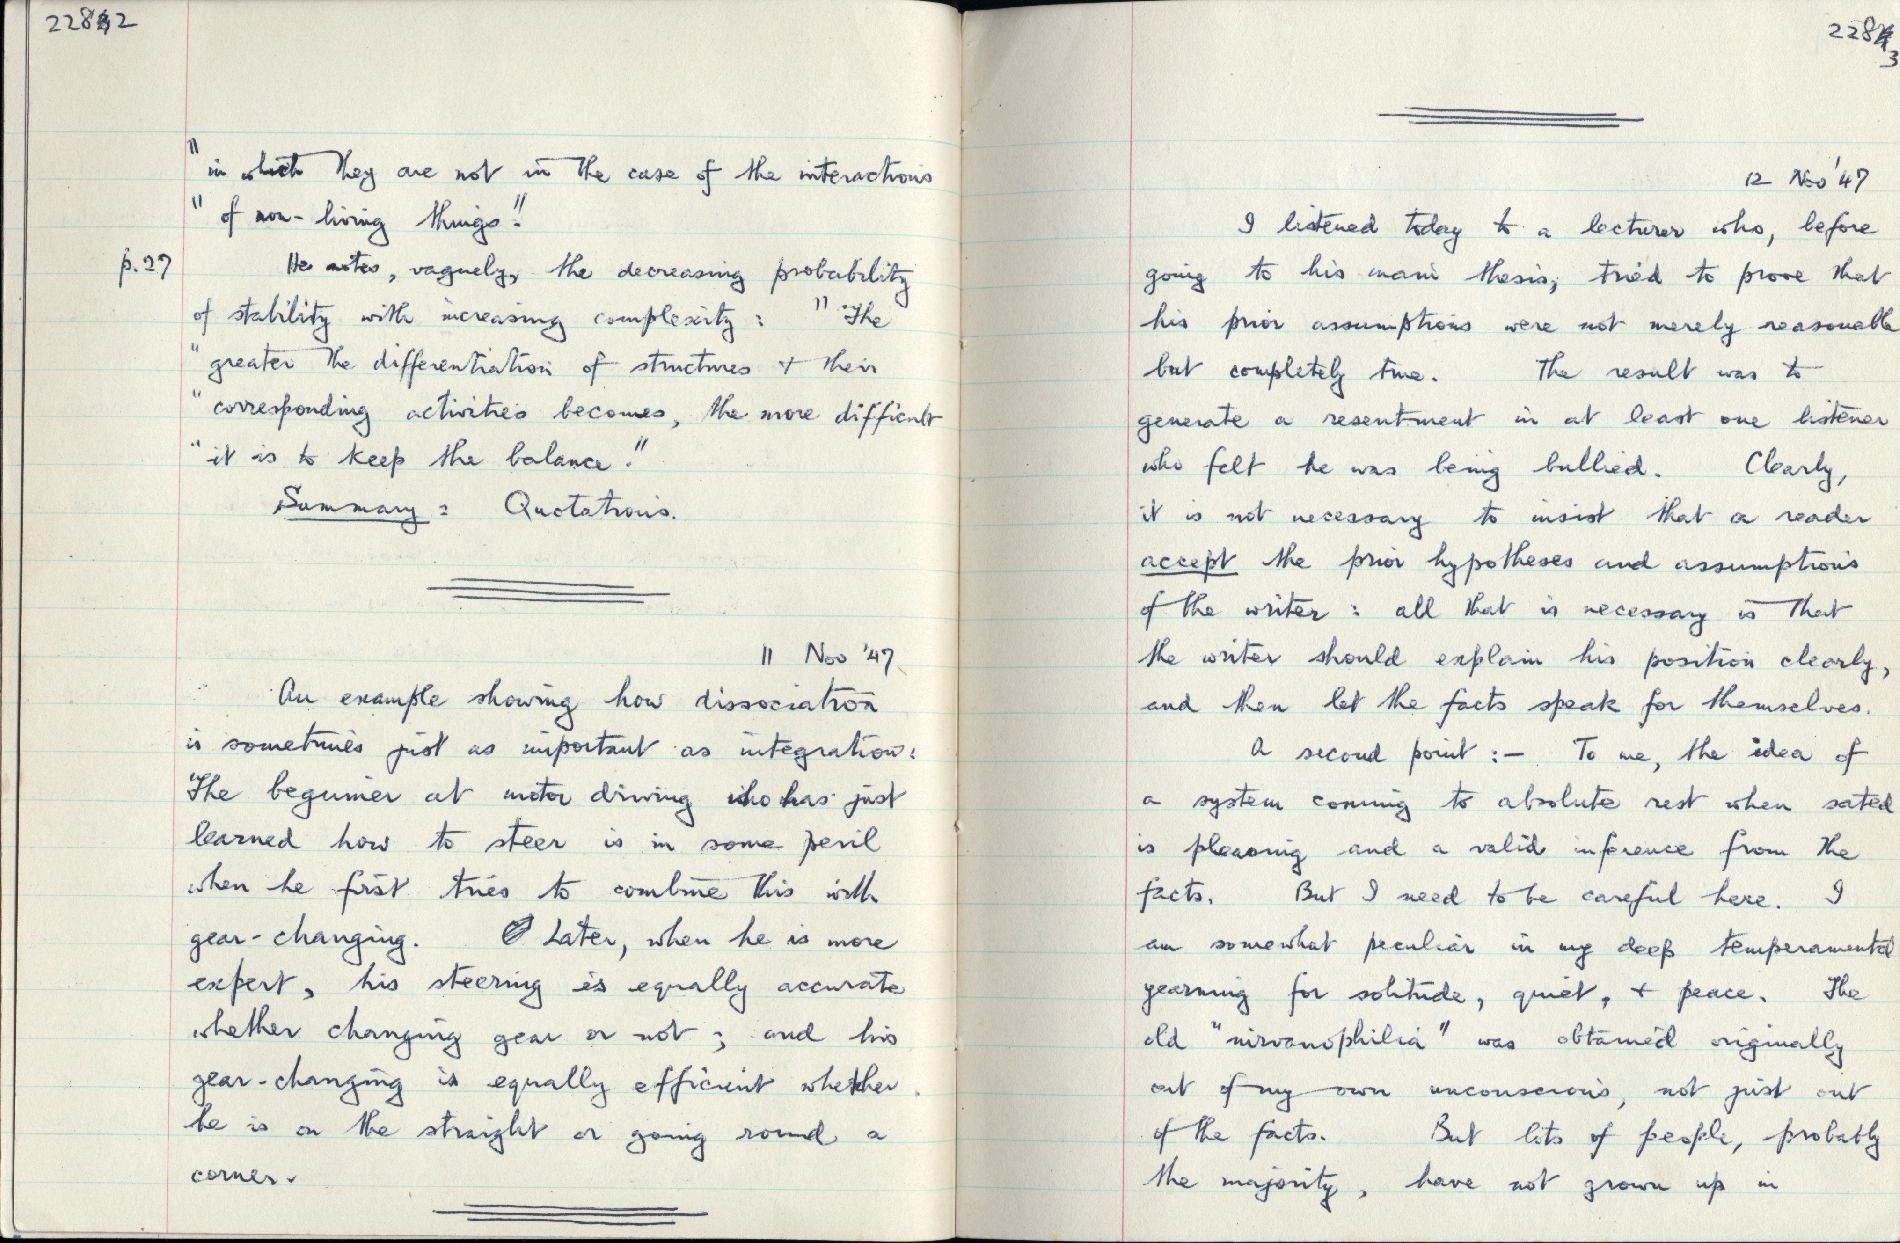 2282
"in which they are not in the case of the interactions
" of non-living things".
p.27 He notes, vaguely, the decreasing probability
of stability with increasing complexity: " The
" greater the differentiation of structures + their
" corresponding activities becomes, the more difficult
" it is to keep the balance."
Summary: Quotations.
11 Nov '47
An example showing how dissociation
is sometimes just as important as integration:
The beginner at motor driving who has just
learned how to steer is in some peril
when he first tries to combine this with
gear-changing. Later, when he is more
expert, his steering is equally accurate
whether changing gear or not; and his
gear-changing is equally efficient whether
he is on the straight or going round a
corner.
2283
12 Nov '47
I listened today to a lecturer who, before
going to his main thesis, tried to prove that
his prior assumptions were not merely reasonable
but completely true. The result was to
generate a resentment in at least one listener
who felt he was being bullied. Clearly,
it is not necessary to insist that a reader
accept the prior hypotheses and assumptions
of the writer: all that is necessary is that
the writer should explain his position clearly,
and then let the facts speak for themselves.
A second point:- To me, the idea of
a system coming to absolute rest when sated
is pleasing and a valid inference from the
facts. But I need to be careful here. I
am somewhat peculiar in my deep temperamental
yearning for solitude, quiet, + peace. The
old "nirvanophilia" was obtained originally
out of my own unconscious, not just out
of the facts. But lots of people, probably
the majority, have not grown up in